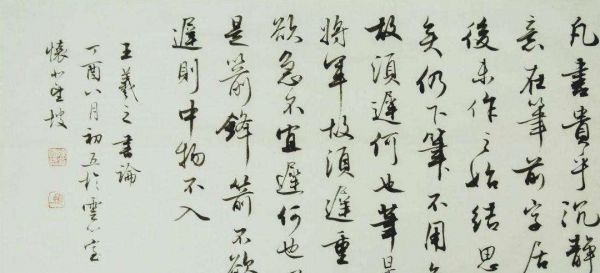 凡書貴乎沉靜
意在筆前字居
後未作之始結思
矣仍下筆不用
故須遲何也筆是
將軍故須遲重
欲急不宜遲何也
是箭鋒箭不欲
遲則中物不入
王羲之書論
丁酉八月初五於雲室
懷望坡